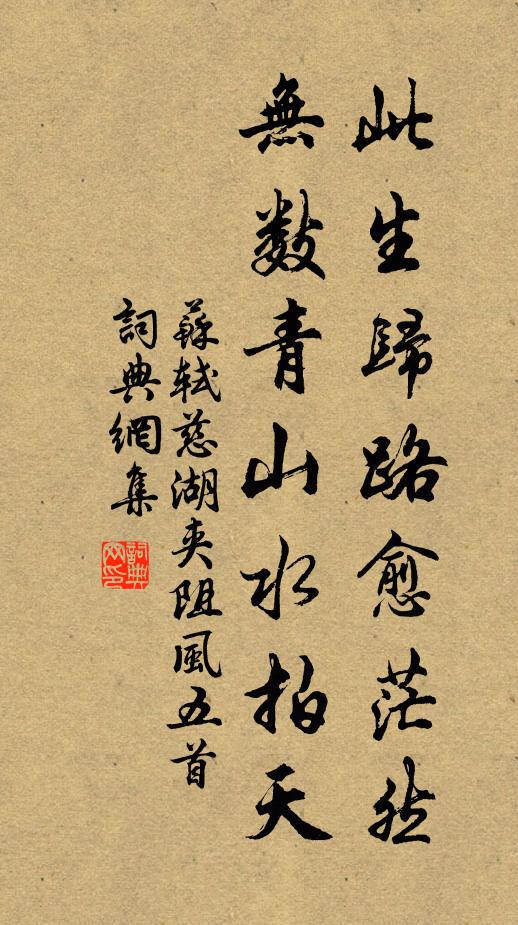 此生歸路愈茫然
無數青山水拍天
蘇軾慈湖夾阻風五首
詞典網集
詞典网印